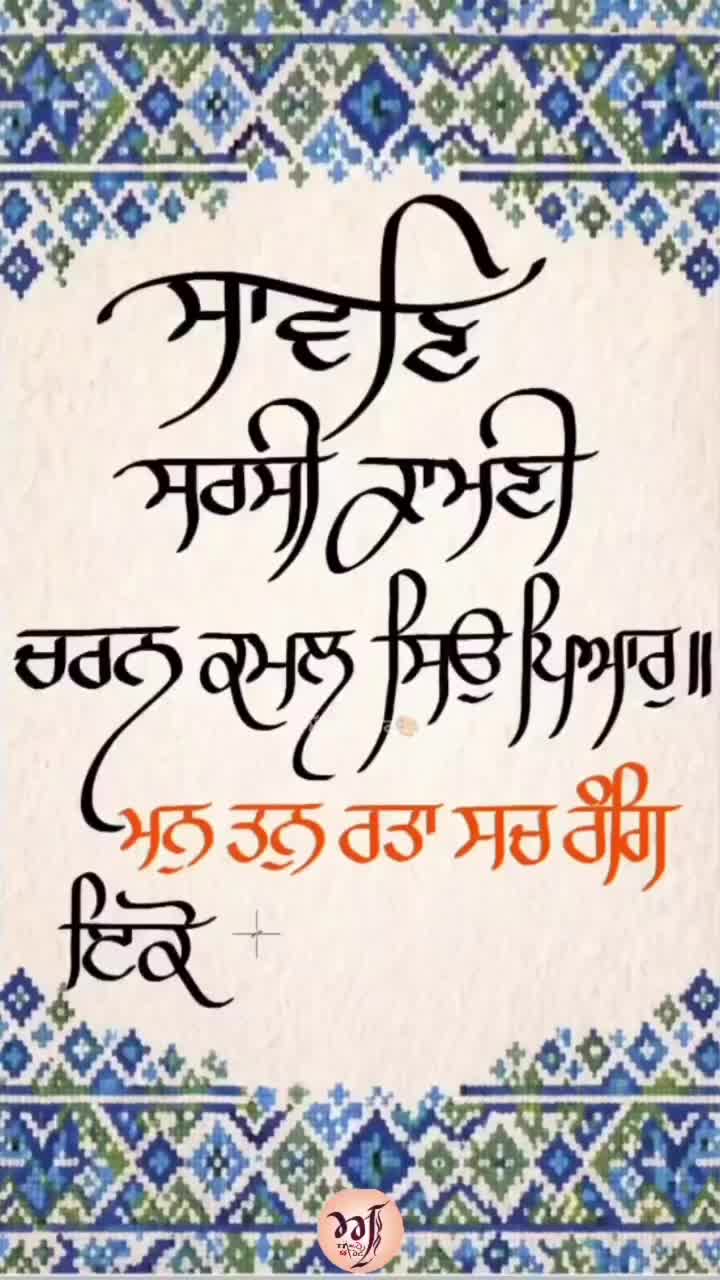 ਸਾਵਣਿ
ਸਰਸੀ ਕਾਮਣੀ
ਚਰਨ ਕਮਲ ਸਿਉ ਪਿਆਰੁ॥
ਮਨੁ ਤਨੁ ਰਤਾ ਸਚ ਰੰਗਿ
ਇਕੋ